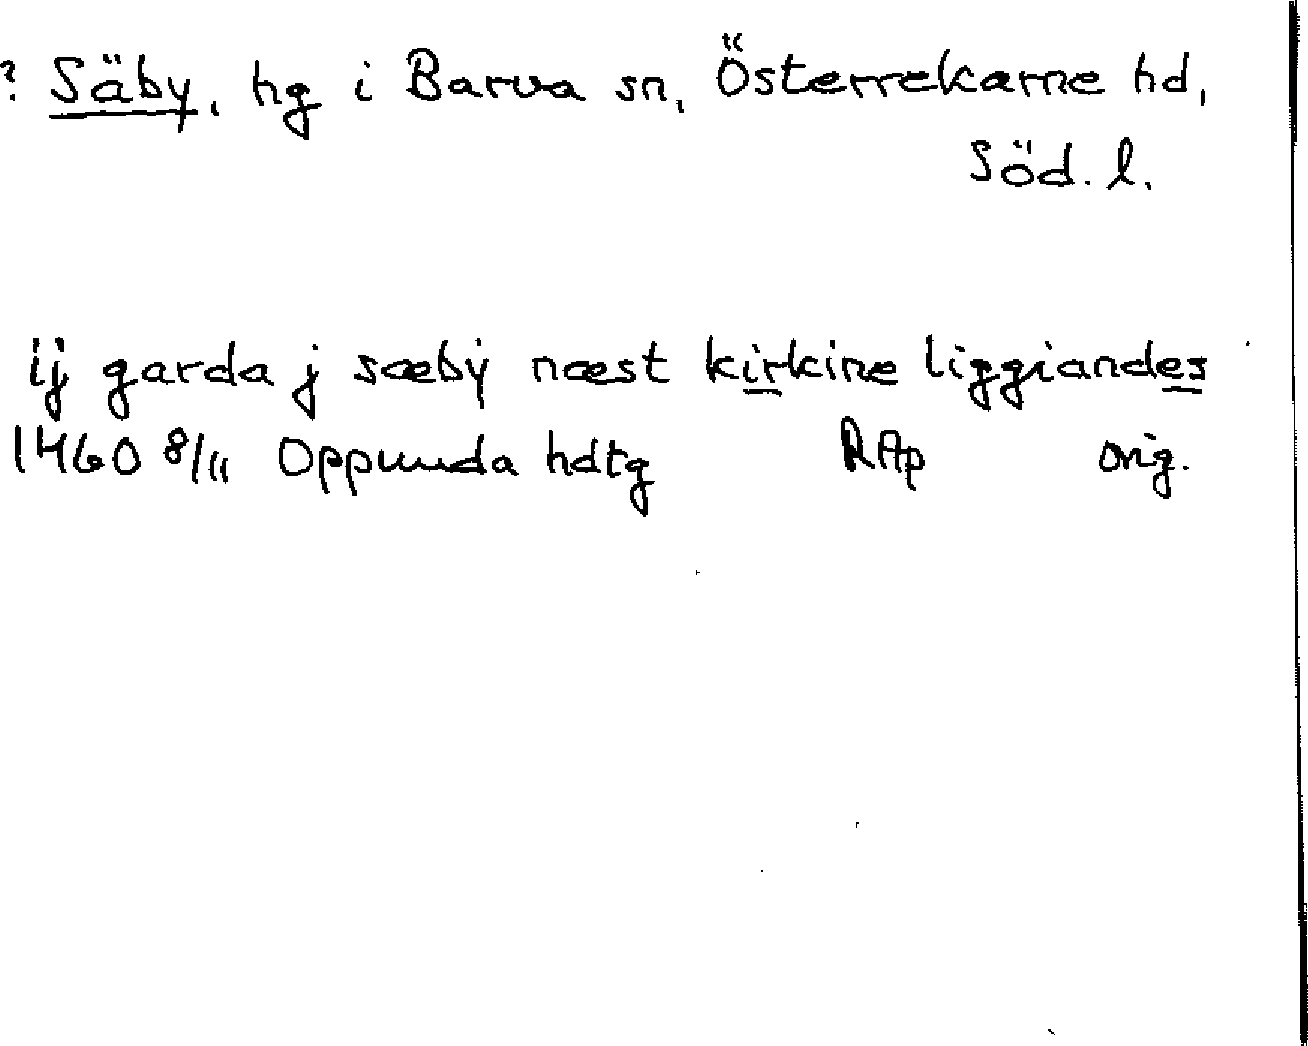 ? Säby, hg i Barva sn, Österrekarne hd,
Söd. l.
ij garda j sæbÿ næst kirkine liggiandes
1460 8/11 Oppunda hdtg RAp orig.